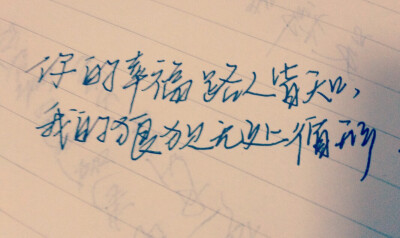 你的幸福路人皆知,
我的狼狈无处循形